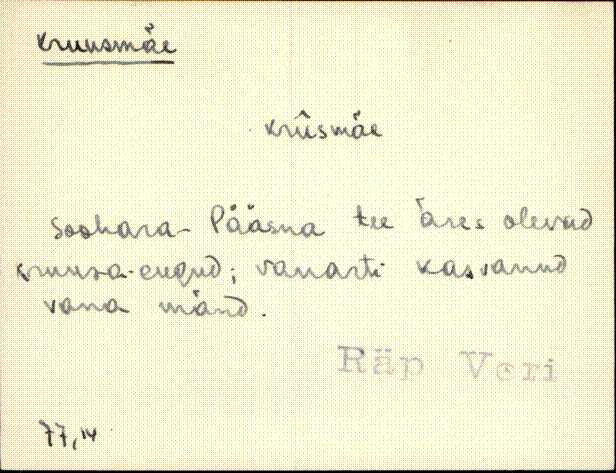 Kruusmäe
krūsmäe
Soohara - Pääsna tee ääres olevad
kruusa-augud; vanasti kasvanud
vana mänd.
Räp Veri
77,14